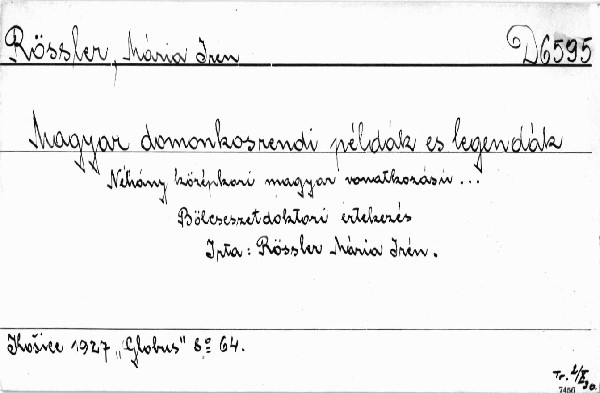 Rössler, Mária Irén D6595
Magyar domonkosrendi példák es legendák
Néhány középkori magyar vonatkozású ...
Bölcseszetdoktori értekezés
Irta: Rössler Mária Irén.
Košice 1927 „Globus" 8° 64.
Tr.
7456